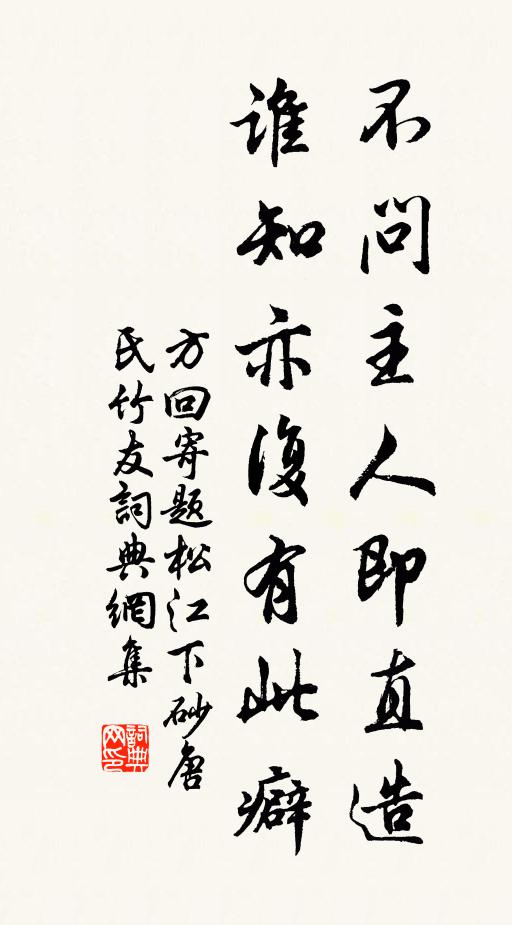 不問主人即直造
誰知亦復有此癖
方回寄題松江下砂唐
氏竹友詞典網集
詞典
网印